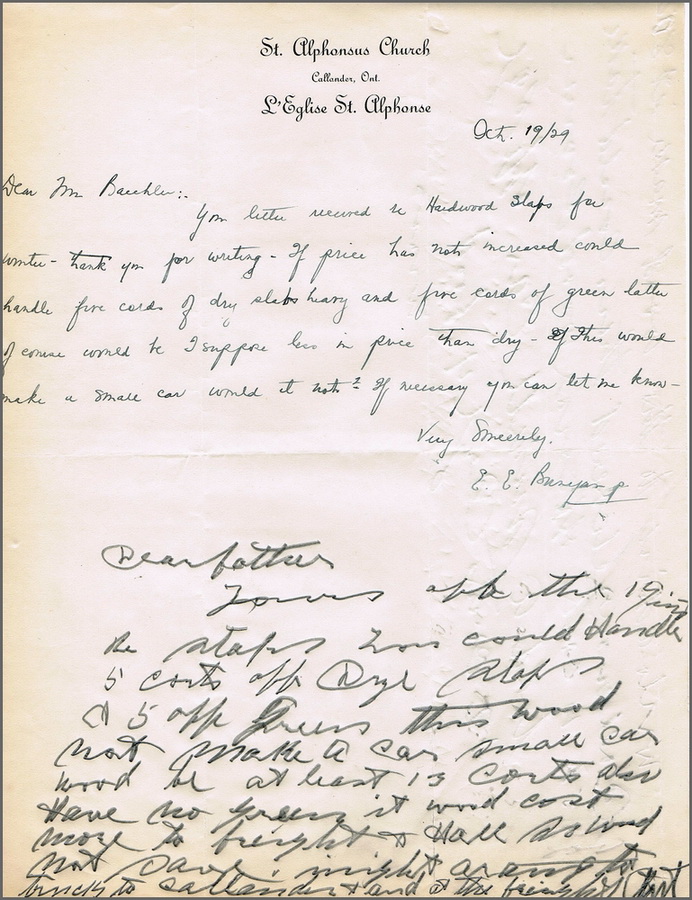 St. Alphonsus Church
Callander, Ont.
L'Eglise St. Alphonse
Oct. 19/29
Dear Mr Baechler:-
Your letter received re Hardwood Slabs for
winter - thank you for writing - If price has not increased could
handle five cords of dry slabs heavy and five cords of green latter
of course would be I suppose less in price than dry - If this would
make a small car would it not? If necessary you can let me know -
Very Sincerely,
E. E.
Dear father
Yours off the 19 inst
Re slaps you could Handle
5 corts off Drye slaps
& 5 off Green this wood
not Make a car small car
wood be at least 13 corts also
Have no green it wood cost
more to freight &
not save might
truck to Callander & and at the freight